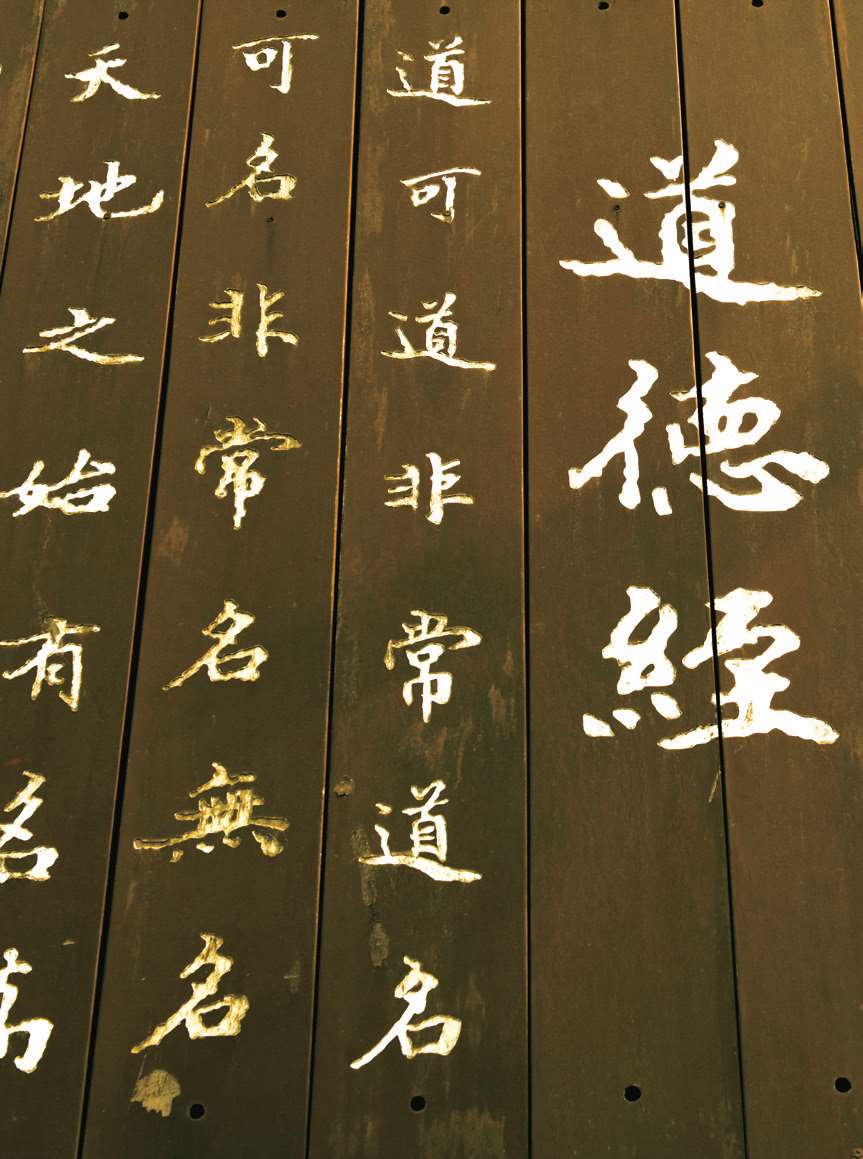 道德經
道可道非常道名
可名非常名無名
天地之始有名萬